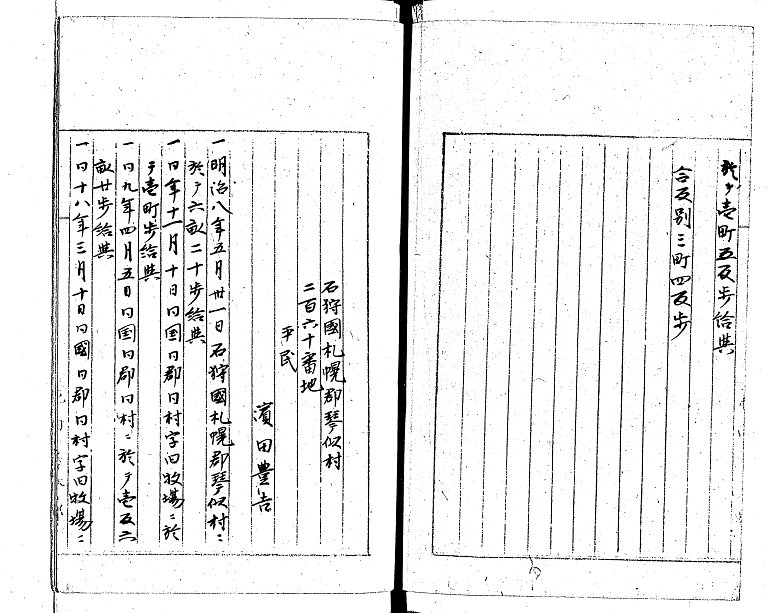 於テ壱町五反歩給與
合反別三町四反歩
石狩國札幌郡琴似村
二百六十番地
平民
濱田豊吉
一明治八年五月卅一日石狩國札幌郡琴似村ニ
於テ六畝二十歩給與
一同年十一月十日同国同郡同村字旧牧場ニ於
テ壱町歩給與
一同九年四月五日同国同郡同村ニ於テ壱反三
畝廿歩給與
一同十八年三月十日同國同郡同村字旧牧場ニ